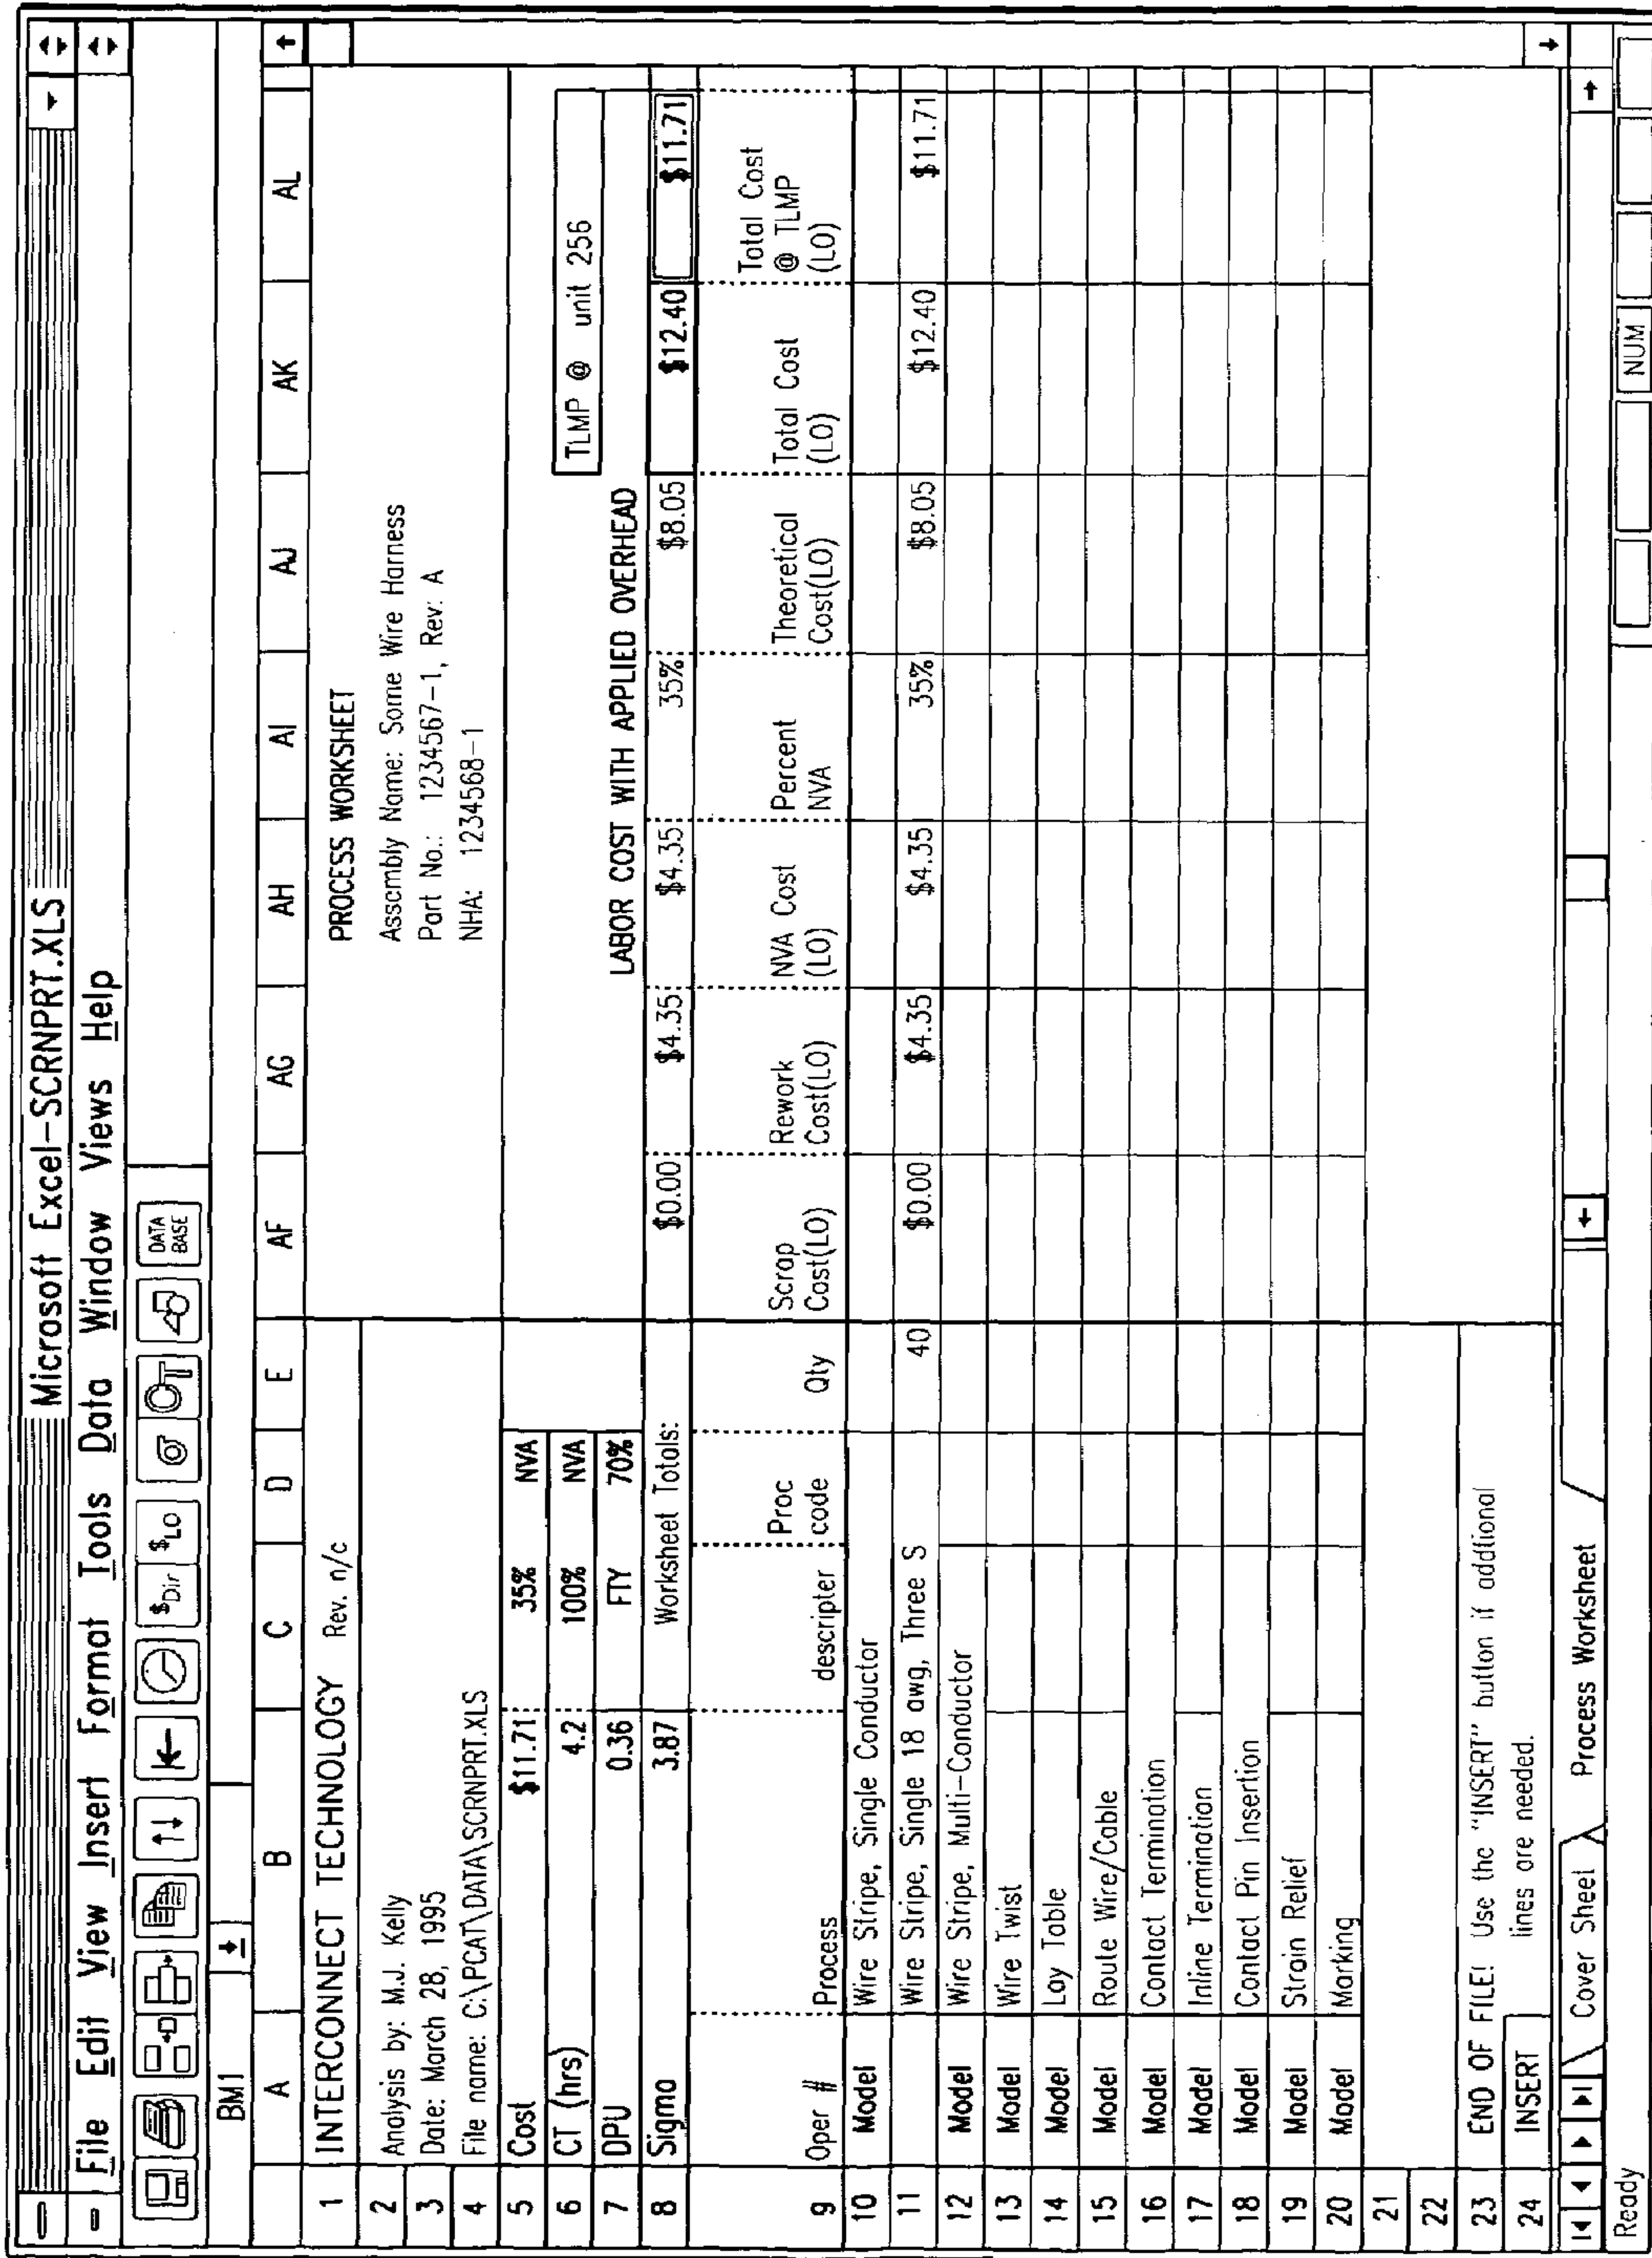 Microsoft Excel-SCRNPRT.XLS
File Edit View Insert Format Tools Data Window Views Help
$Dir $LO σ DATA BASE
BM1
A B C D E AF AG AH AI AJ AK AL
1 INTERCONNECT TECHNOLOGY Rev. n/c PROCESS WORKSHEET
2 Analysis by: M.J. Kelly Assembly Name: Some Wire Harness
3 Date: March 28, 1995 Part No.: 1234567-1, Rev: A
4 File name: C:\PCAT\DATA\SCRNPRT.XLS NHA: 1234568-1
5 Cost $11.71 35% NVA
6 CT (hrs) 4.2 100% NVA TLMP @ unit 256
7 DPU 0.36 FTY 70% LABOR COST WITH APPLIED OVERHEAD
8 Sigma 3.87 Worksheet Totals: $0.00 $4.35 $4.35 35% $8.05 $12.40 $11.71
9 Oper # Process descripter Proc code Qty Scrap Cost(LO) Rework Cost(LO) NVA Cost (LO) Percent NVA Theoretical Cost(LO) Total Cost (LO) Total Cost @ TLMP (LO)
10 Model Wire Stripe, Single Conductor
11 Wire Stripe, Single 18 awg, Three S 40 $0.00 $4.35 $4.35 35% $8.05 $12.40 $11.71
12 Model Wire Stripe, Multi-Conductor
13 Model Wire Twist
14 Model Lay Table
15 Model Route Wire/Cable
16 Model Contact Termination
17 Model Inline Termination
18 Model Contact Pin Insertion
19 Model Strain Relief
20 Model Marking
21
22
23 END OF FILE! Use the "INSERT" button if addtional
24 INSERT lines are needed.
Cover Sheet Process Worksheet
Ready NUM